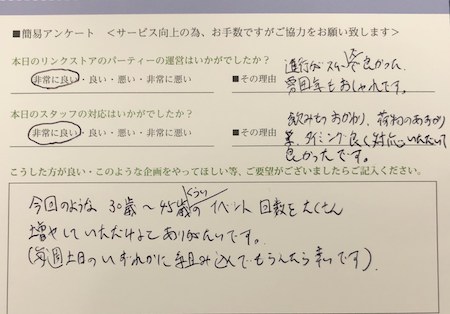 ■簡易アンケート <サービス向上の為、お手数ですがご協力をお願い致します>
本日のリンクストアのパーティーの運営はいかがでしたか?
非常に良い・良い・悪い・非常に悪い
■その理由
進行がスムーズで良かった。
雰囲気もおしゃれです。
本日のスタッフの対応はいかがでしたか?
非常に良い・良い・悪い・非常に悪い
■その理由
飲みもののおかわり、荷物のあずかり
等、タイミング良く対応いただいて
良かったです。
こうした方が良い・このような企画をやってほしい等、ご要望がございましたらご記入ください。
今回のような 30歳〜45歳くらいの イベント 回数をたくさん
増やしていただけるとありがたいです。
(毎週土日のいずれかに組み込んでもらえたら幸いです)